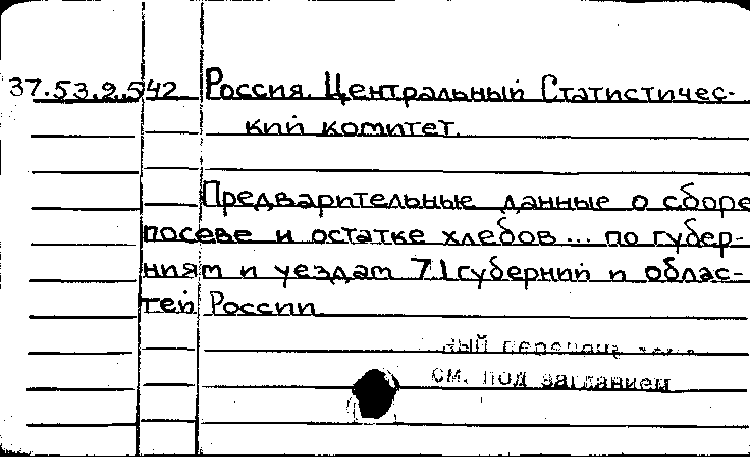 37.53.2.542 Россия. Центральный Статистичес-
кий комитет.
Предварительные данные о сборе
посеве и остатке хлебов... по губер-
ниям и уездам 71 губерний и облас-
тей России
ный перепечат
см. под заглавием